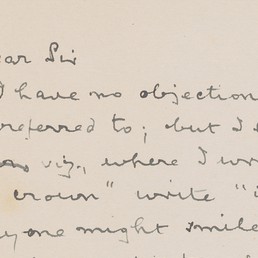 ear Sir
I have no objection
referred to; but I
viz., where I wr
crown" write "i
yone might smile